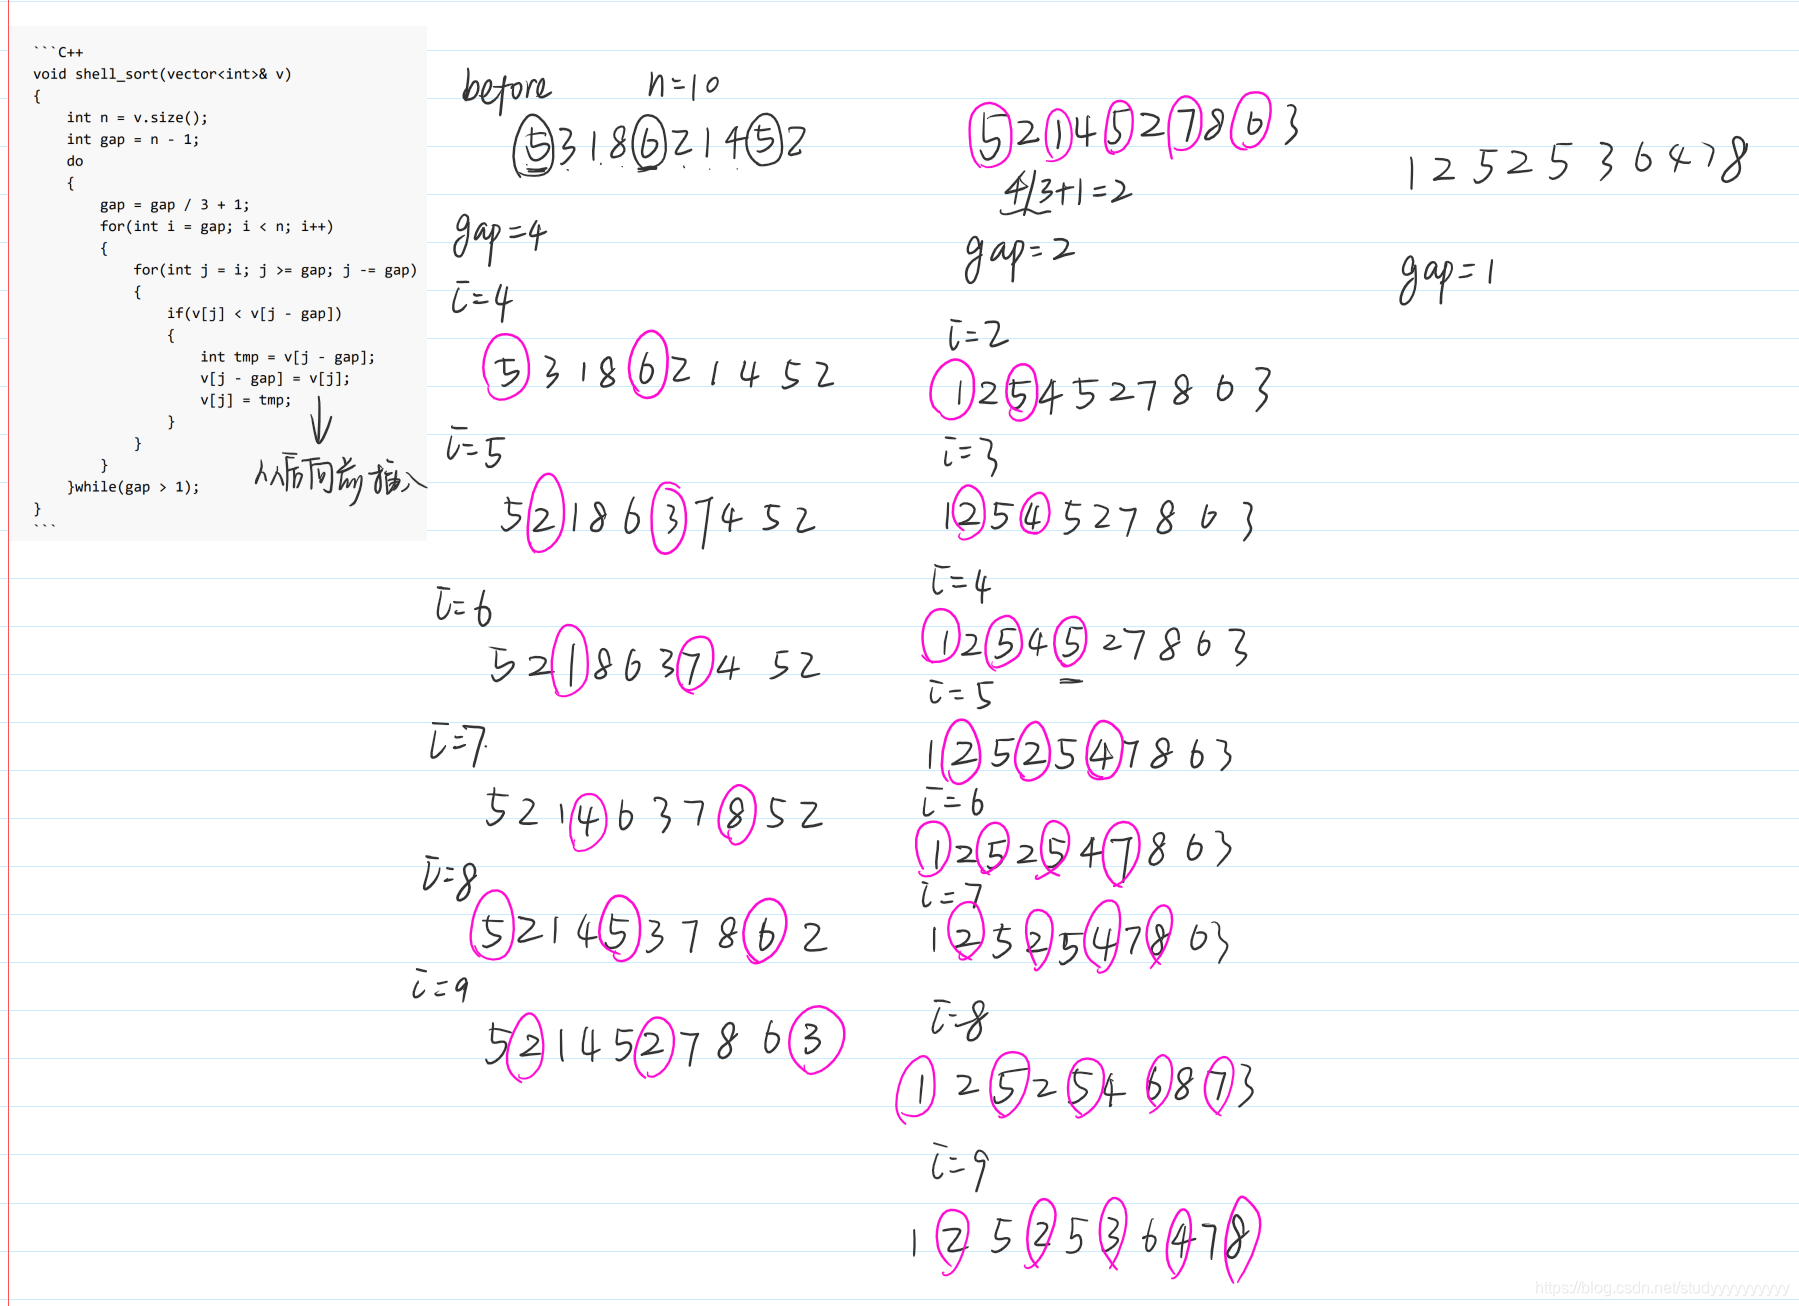 ```C++
void shell_sort(vector<int>& v)
{
int n = v.size();
int gap = n - 1;
do
{
gap = gap / 3 + 1;
for(int i = gap; i < n; i++)
{
for(int j = i; j >= gap; j -= gap)
{
if(v[j] < v[j - gap])
{
int tmp = v[j - gap];
v[j - gap] = v[j];
v[j] = tmp;
}
}
}
}while(gap > 1);
}
```
从后向前插入
before n=10
5 3 1 8 6 2 1 4 5 2
gap=4
i=4
5 3 1 8 6 2 1 4 5 2
i=5
5 2 1 8 6 3 7 4 5 2
i=6
5 2 1 8 6 3 7 4 5 2
i=7
5 2 1 4 6 3 7 8 5 2
i=8
5 2 1 4 5 3 7 8 6 2
i=9
5 2 1 4 5 2 7 8 6 3
5 2 1 4 5 2 7 8 6 3
4/3+1=2
gap=2
i=2
1 2 5 4 5 2 7 8 6 3
i=3
1 2 5 4 5 2 7 8 6 3
i=4
1 2 5 4 5 2 7 8 6 3
i=5
1 2 5 2 5 4 7 8 6 3
i=6
1 2 5 2 5 4 7 8 6 3
i=7
1 2 5 2 5 4 7 8 6 3
i=8
1 2 5 2 5 4 6 8 7 3
i=9
1 2 5 2 5 3 6 4 7 8
1 2 5 2 5 3 6 4 7 8
gap=1
https://blog.csdn.net/studyyyyyyyyyy